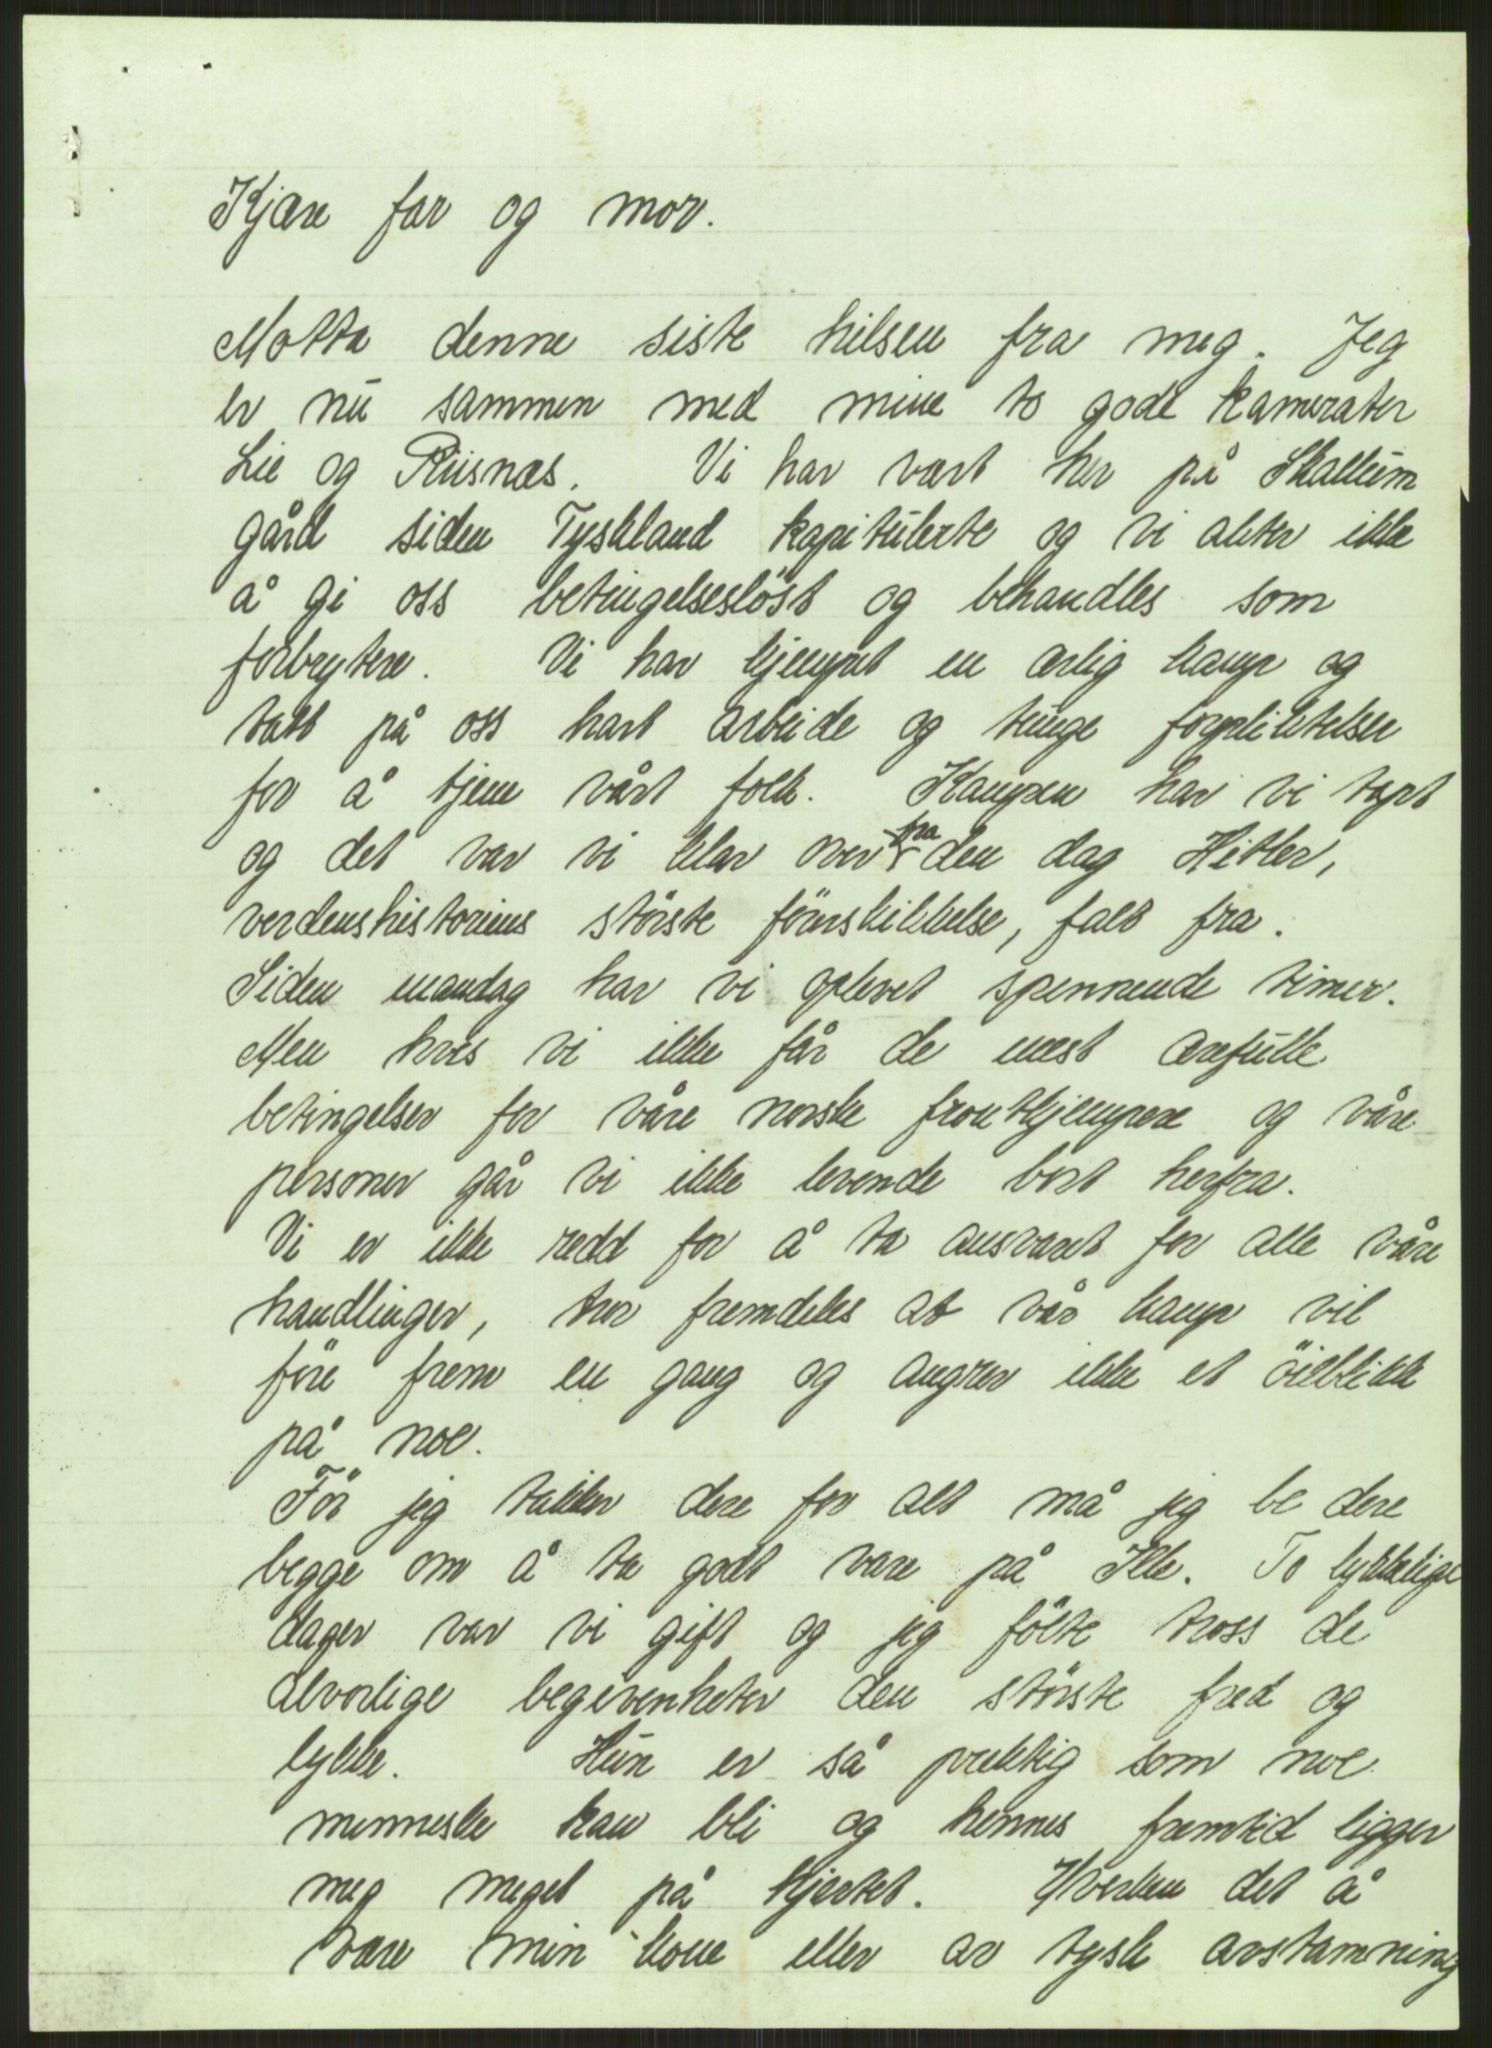 Kjære far og mor.
Motta denne siste hilsen fra meg. Jeg
er nu sammen med mine to gode kamerater
Lie og Riisnæs. Vi har vært her på Skallum
gård siden Tyskland kapitulerte og vi akter ikke
å gi oss betingelsesløst og behandles som
forbrytere. Vi har kjempet en ærlig kamp og
tatt på oss hart arbeide og tunge forpliktelser
for å tjene vårt folk. Kampen har vi tapt
og det var vi klar over fra den dag Hitler,
verdenshistoriens største förerskikkelse, falt fra.
Siden mandag har vi oplevet spennende timer.
Men hvis vi ikke får de mest ærefulle
betingelser for våre norske frontkjempere og våre
personer går vi ikke levende bort herfra.
Vi er ikke redd for å ta ansvaret for alle våre
handlinger, tror fremdeles at vår kamp vil
före frem en gang og angrer ikke et öieblikk
på noe.
För jeg takker dere for alt må jeg be dere
begge om å ta godt vare på Ille. To lykkelige
dager var vi gift og jeg fölte tross de
alvorlige begivenheter den störste fred og
lykke. Hun er så prektig som noe
menneske kan bli og hennes fremtid ligger
meg meget på hjertet. Hverken det å
være min kone eller av tysk avstamning